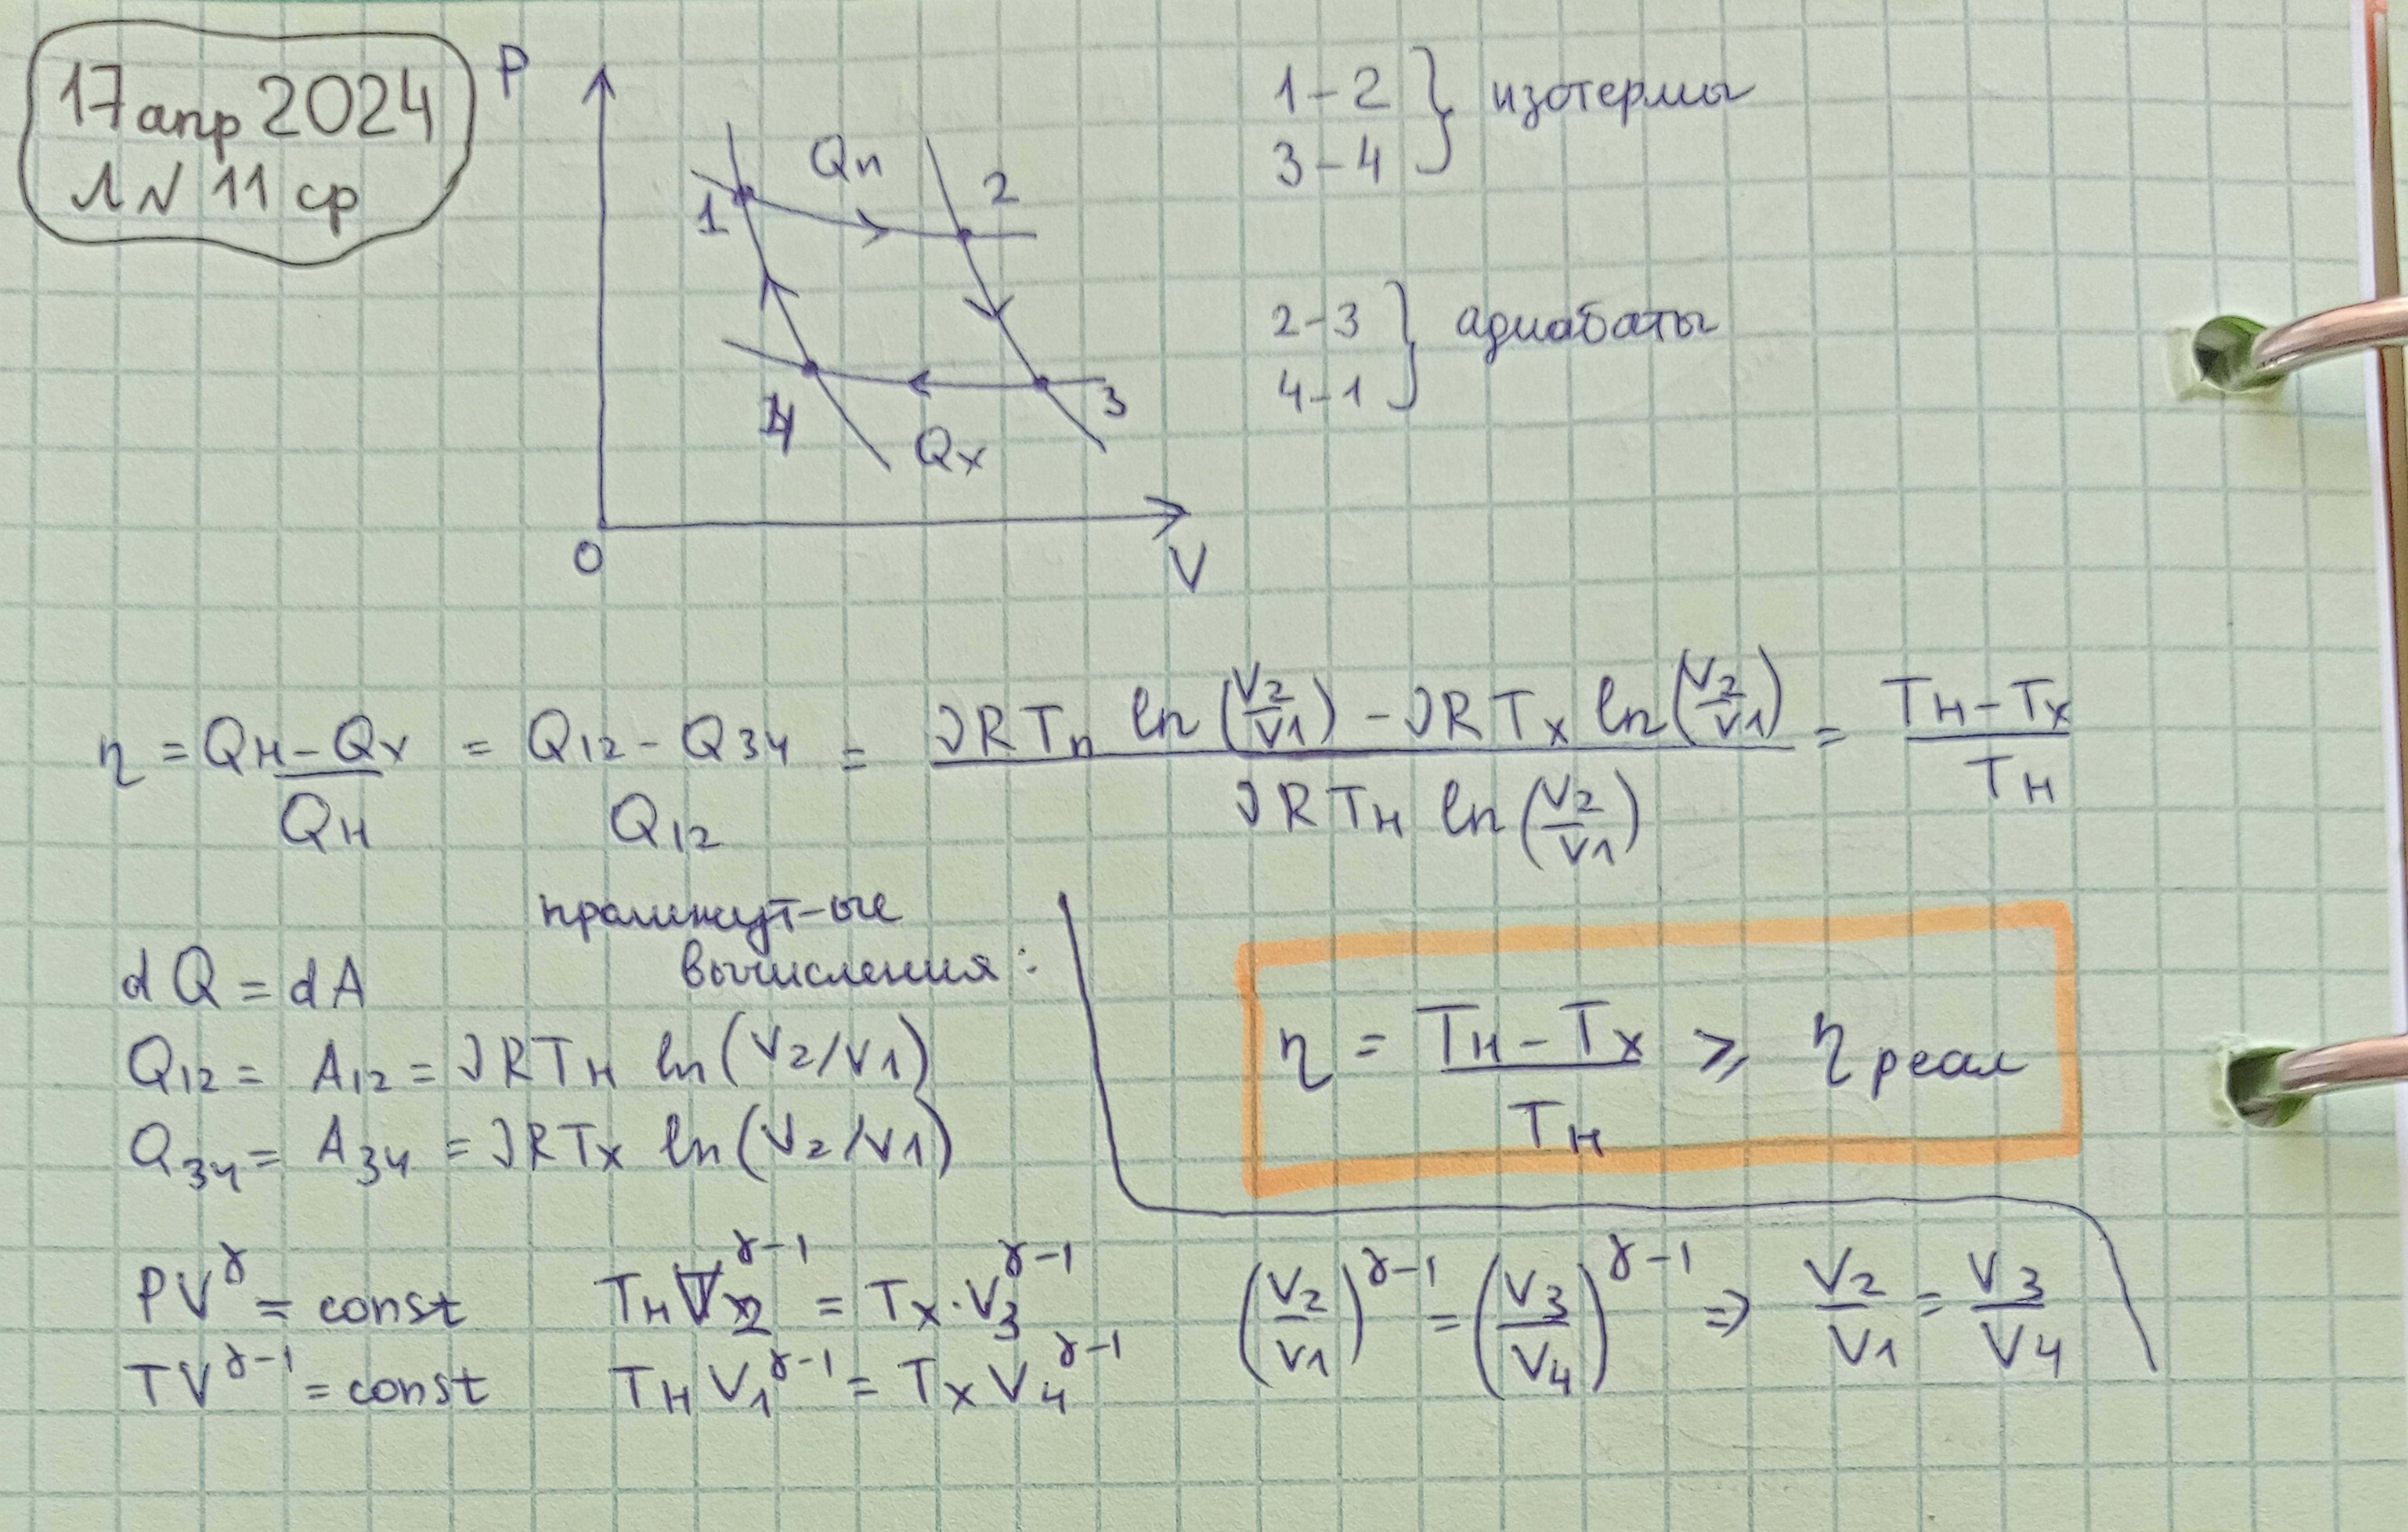 17 апр 2024
Л N 11 ср
P
Qн
1
2
4
3
Qx
0
V
1-2
3-4 } изотермы
2-3
4-1 } адиабаты
η = (Qн - Qx)/Qн = (Q12 - Q34)/Q12 = (νRTн ln(V2/V1) - νRTx ln(V2/V1))/(νRTн ln(V2/V1)) = (Tн - Tx)/Tн
промжут-ые
вычисления:
dQ = dA
Q12 = A12 = νRTн ln(V2/V1)
Q34 = A34 = νRTx ln(V2/V1)
η = (Tн - Tx)/Tн ⩾ ηреал
PV^γ = const
TV^(γ-1) = const
TнV2^(γ-1) = Tx·V3^(γ-1)
TнV1^(γ-1) = TxV4^(γ-1)
(V2/V1)^(γ-1) = (V3/V4)^(γ-1) ⇒ V2/V1 = V3/V4